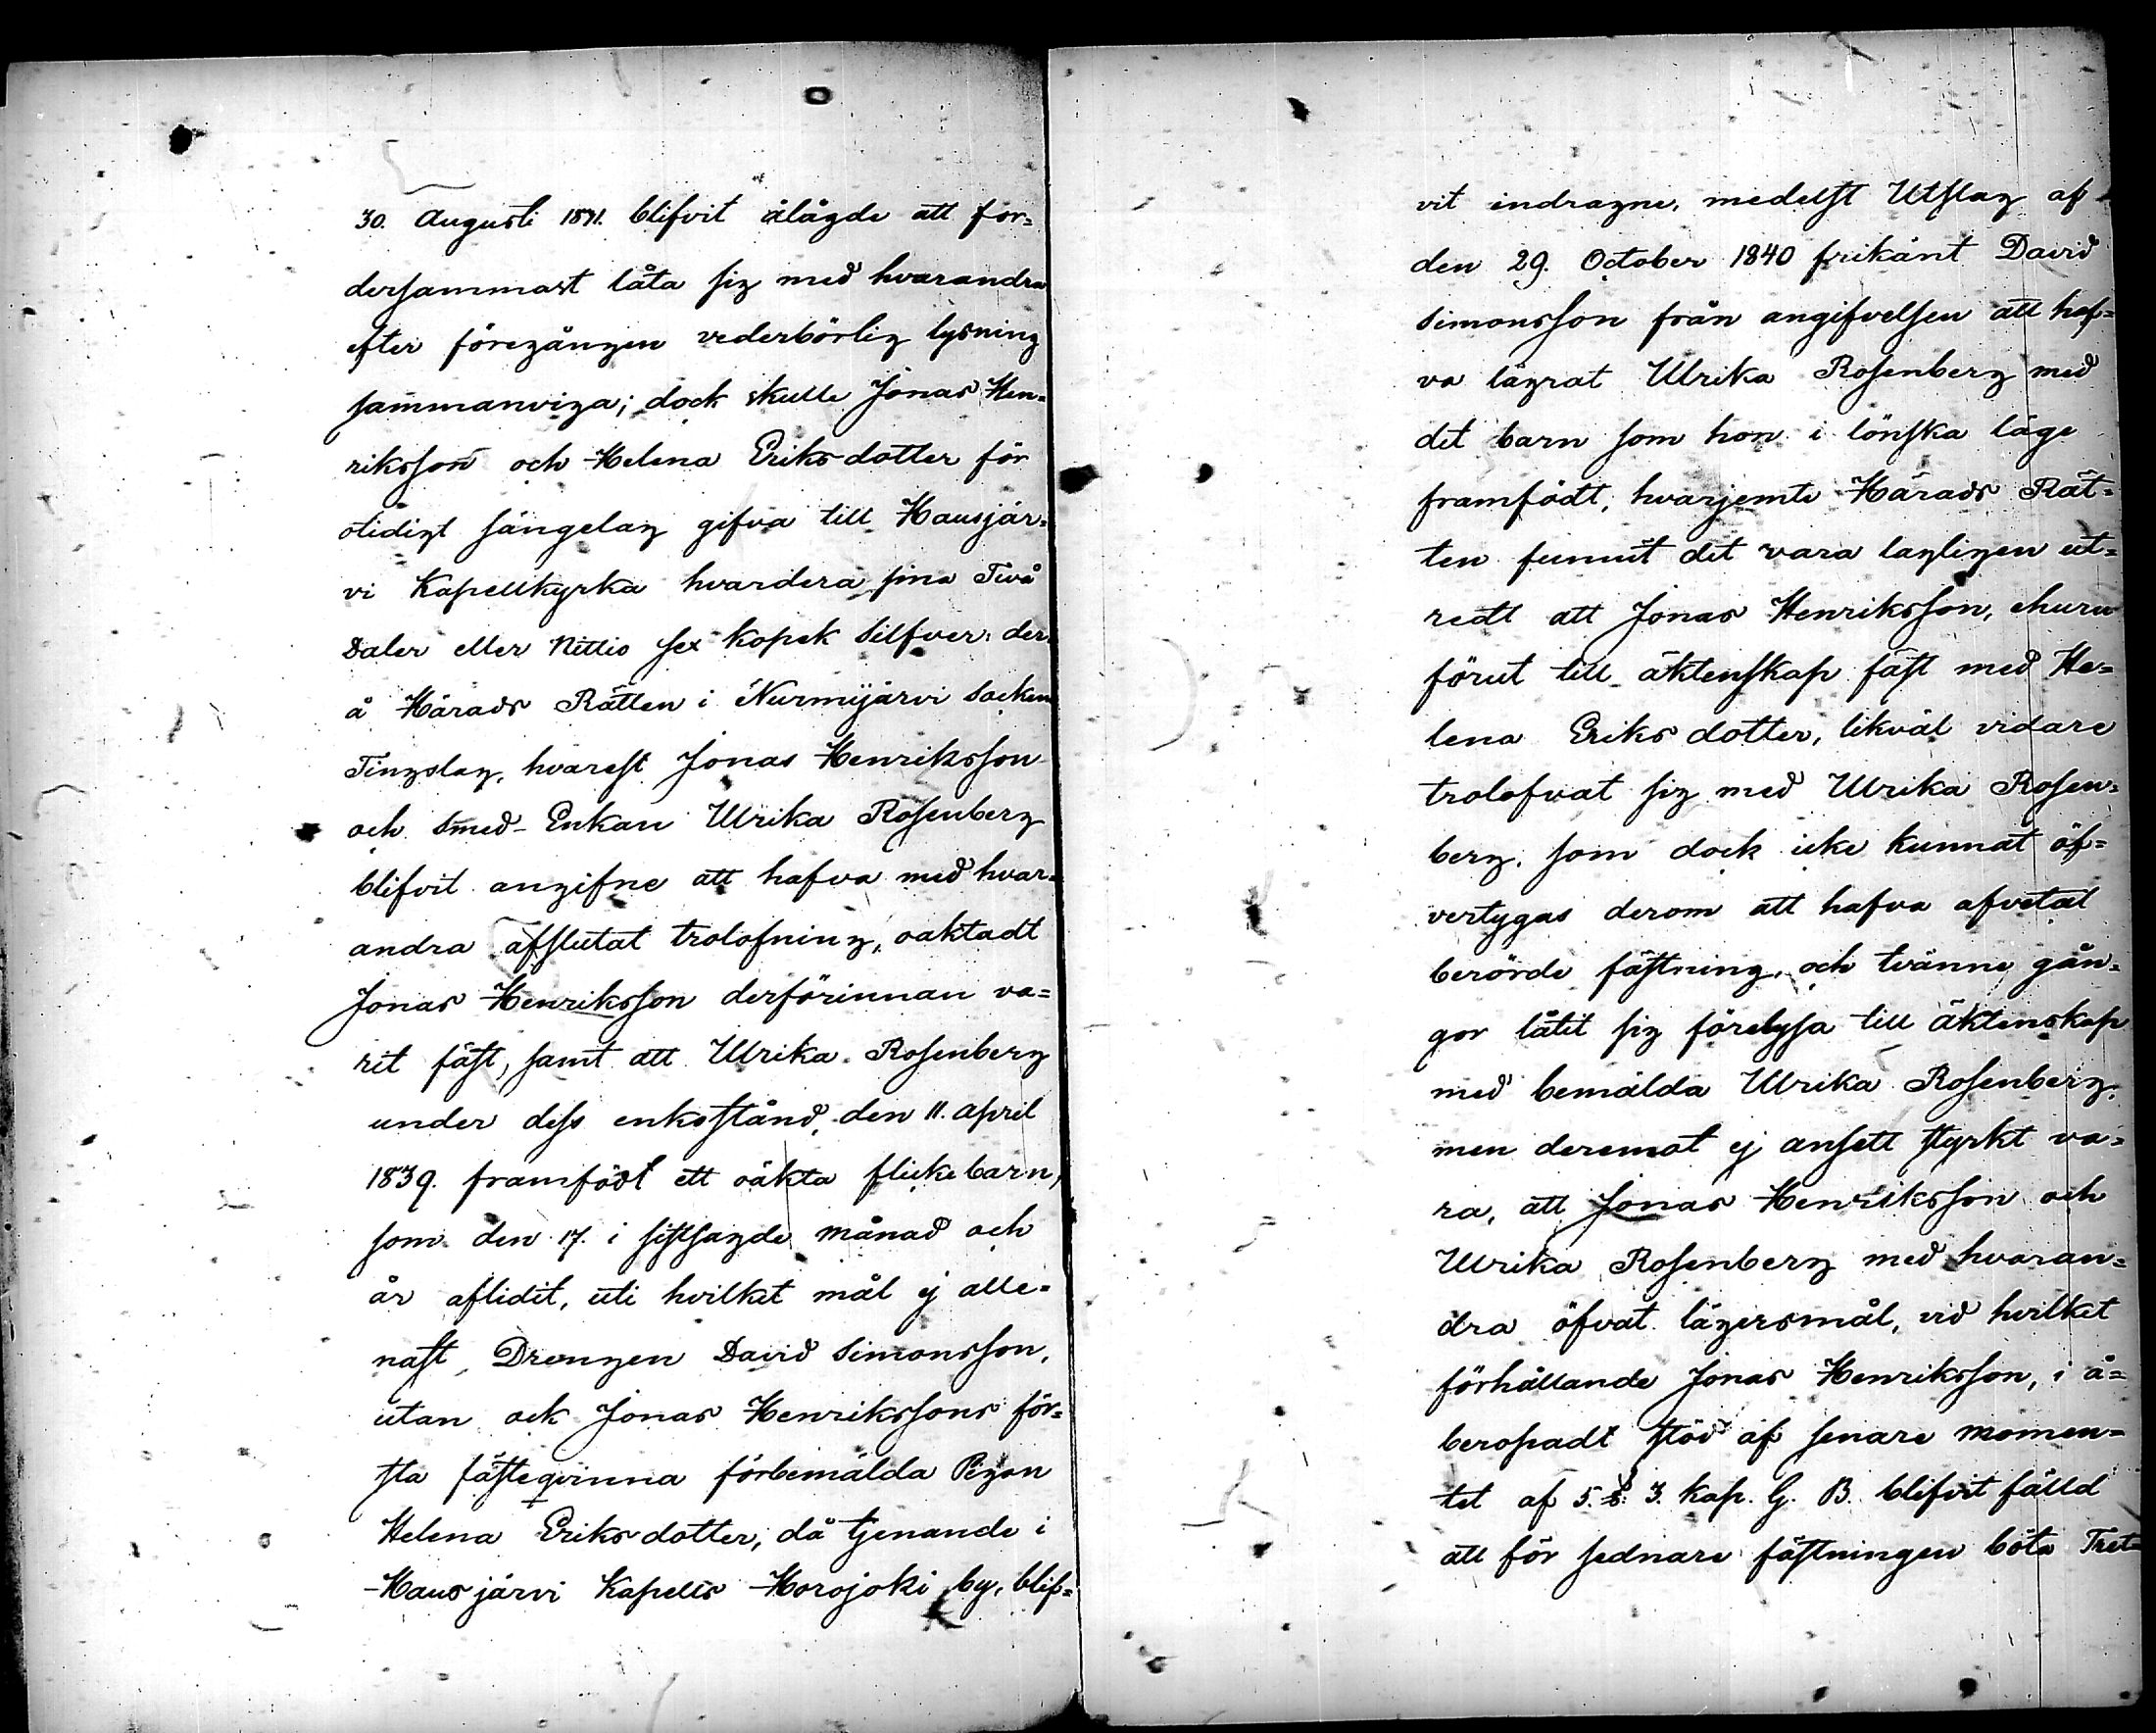 30. Augusti 1841. blifvit ålagde att for=
dersammast låta sig med hvarandra
efter föregången vederbörlig lysning
sammanviga; dock skulle Jonas Hen=
riksson och Helena Eriksdotter för
otidigt sängelag gifva till Hausjär=
vi Kapellkyrka hvardera sina Två
Daler eller Nittio sex kopek Silfver; der=
å Härads Rätten i Nurmijärvi Socken
Tingslag, hvarest Jonas Henriksson
och Smed-Enkan Ulrika Rosenberg
blifvit angifne att hafva med hvar=
andra afslutat trolofning, oaktadt
Jonas Henriksson derförinnan va=
rit fäst, samt att Ulrika Rosenberg
under dess enkostånd, den 11. April
1839. framfödt ett oäkta flickebarn,
som den 17. i sistsagde månad och
år aflidit, uti hvilket mål ej alle=
nast Drengen David Simonsson,
utan ock Jonas Henrikssons för=
sta fästeqvinna förbemälda Pigan
Helena Eriksdotter, då tjenande i
Hausjärvi Kapells Horojoki by, blif=
vit indragne, medelst Utslag af
den 29. October 1840 frikänt David
Simonsson från angifvelsen att haf=
va lägrat Ulrika Rosenberg med
det barn som hon i lönska läge
framfödt, hvarjemte Härads Rät=
ten funnit det vara lagligen ut=
redt att Jonas Henriksson, ehuru
förut till äktenskap fäst med He=
lena Eriksdotter, likväl vidare
trolofvat sig med Ulrika Rosen=
berg, som dock icke kunnat öf=
vertygas derom att hafva afvetat
berörde fästning, och tvänne gån=
gor låtit sig förelysa till äktenskap
med bemälda Ulrika Rosenberg,
men deremot ej ansett styrkt va=
ra, att Jonas Henriksson och
Ulrika Rosenberg med hvaran=
dra öfvat lägersmål, vid hvilket
förhållande Jonas Henriksson, i å=
beropadt stöd af senare momen=
tet af 5. §. 3. Kap. G. B. blifvit fälld
att för sednare fästningen böta Tret=